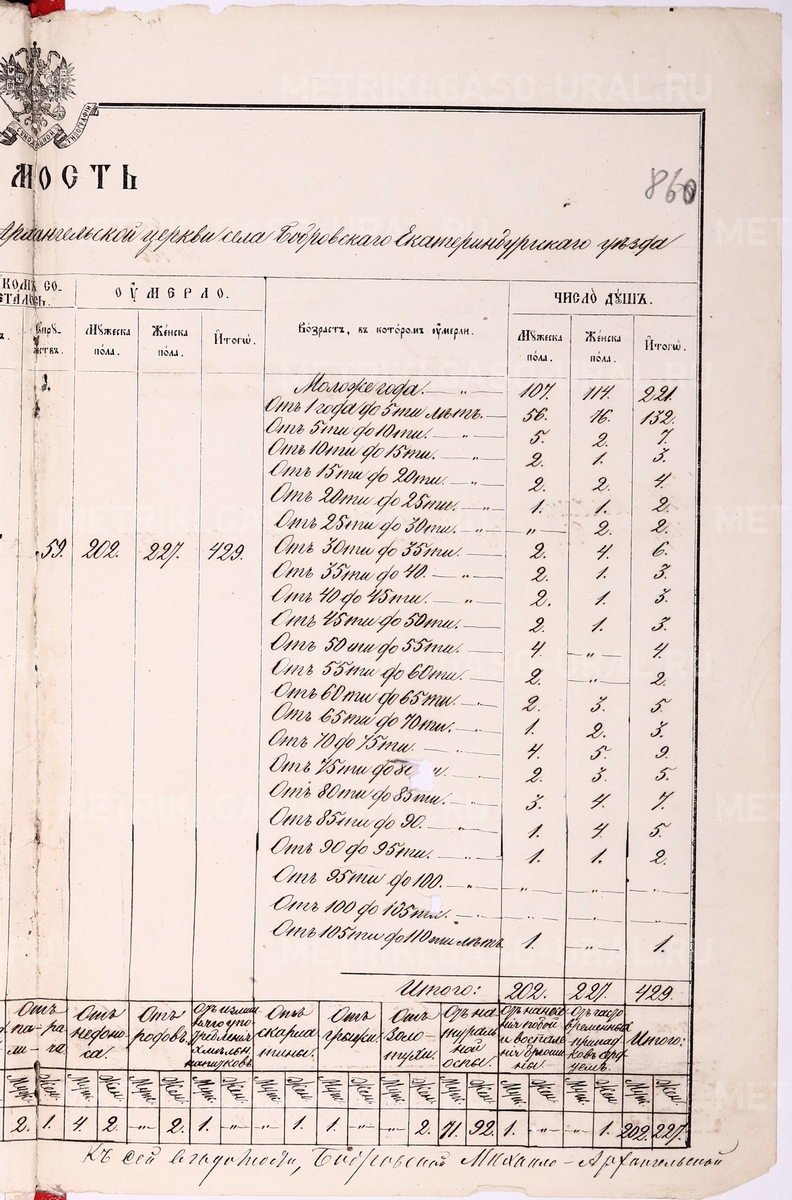 METRIKI.GASO-URAL.RU
СУНОДАЛЬНОЙ ТИПОГРАФІИ
МОСТЬ
860
Архангельской церкви села Бобровскаго Екатеринбургскаго уѣзда
КОМЪ СО- ОУМЕРЛО. ЧИСЛО ДУШЪ.
СТАЛОСЬ.
Мужеска пола. Женска пола. Итого. Возрастъ, въ которомъ умерли. Мужеска пола. Женска пола. Итого.
Моложе года. — „ — 107. 114. 221.
Отъ 1 года до 5ти лѣтъ. — 56. 76. 132.
Отъ 5ти до 10ти. — „ — 5. 2. 7.
Отъ 10ти до 15ти. — „ — 2. 1. 3.
Отъ 15ти до 20ти. — „ — 2. 2. 4.
Отъ 20ти до 25ти. — „ — 1. 1. 2.
Отъ 25ти до 30ти. — „ — „ — 2. 2.
59. 202. 227. 429. Отъ 30ти до 35ти. — „ — 2. 4. 6.
Отъ 35ти до 40. — „ — 2. 1. 3.
Отъ 40 до 45ти. — „ — 2. 1. 3.
Отъ 45ти до 50ти. — „ — 2. 1. 3.
Отъ 50ти до 55ти. — „ — 4. „ — 4.
Отъ 55ти до 60ти. — „ — 2. „ — 2.
Отъ 60ти до 65ти. — „ — 2. 3. 5.
Отъ 65ти до 70ти. — „ — 1. 2. 3.
Отъ 70 до 75ти. — „ — 4. 5. 9.
Отъ 75ти до 80ти. — „ — 2. 3. 5.
Отъ 80ти до 85ти. — „ — 3. 4. 7.
Отъ 85ти до 90. — „ — 1. 4. 5.
Отъ 90 до 95ти. — „ — 1. 1. 2.
Отъ 95ти до 100. — „ — „ — „ — „ —
Отъ 100 до 105ти. — „ — „ — „ —
Отъ 105ти до 110ти лѣтъ. 1. „ — 1.
Итого: 202. 227. 429.
Отъ пара-лича Отъ недоноса. Отъ родовъ. Отъ излишняго употребленія хмѣльн. напитковъ Отъ скарлатины. Отъ грыжи. Отъ золотухи. Отъ натуральной оспы. Отъ побой и воспаленія брюшины. припадковъ Итого:
Муж. Жен. Муж. Жен. Муж. Жен. Муж. Жен. Муж. Жен. Муж. Жен. Муж. Жен. Муж. Жен. Муж. Жен. Муж. Жен. Муж. Жен.
2. 1. 4. 2. „ 2. 1. „ „ 1. 1. „ „ 2. 71. 92. 1. „ „ 1. 202. 227.
Къ сей вѣдомости, Бобровской Михаило-Архангельской